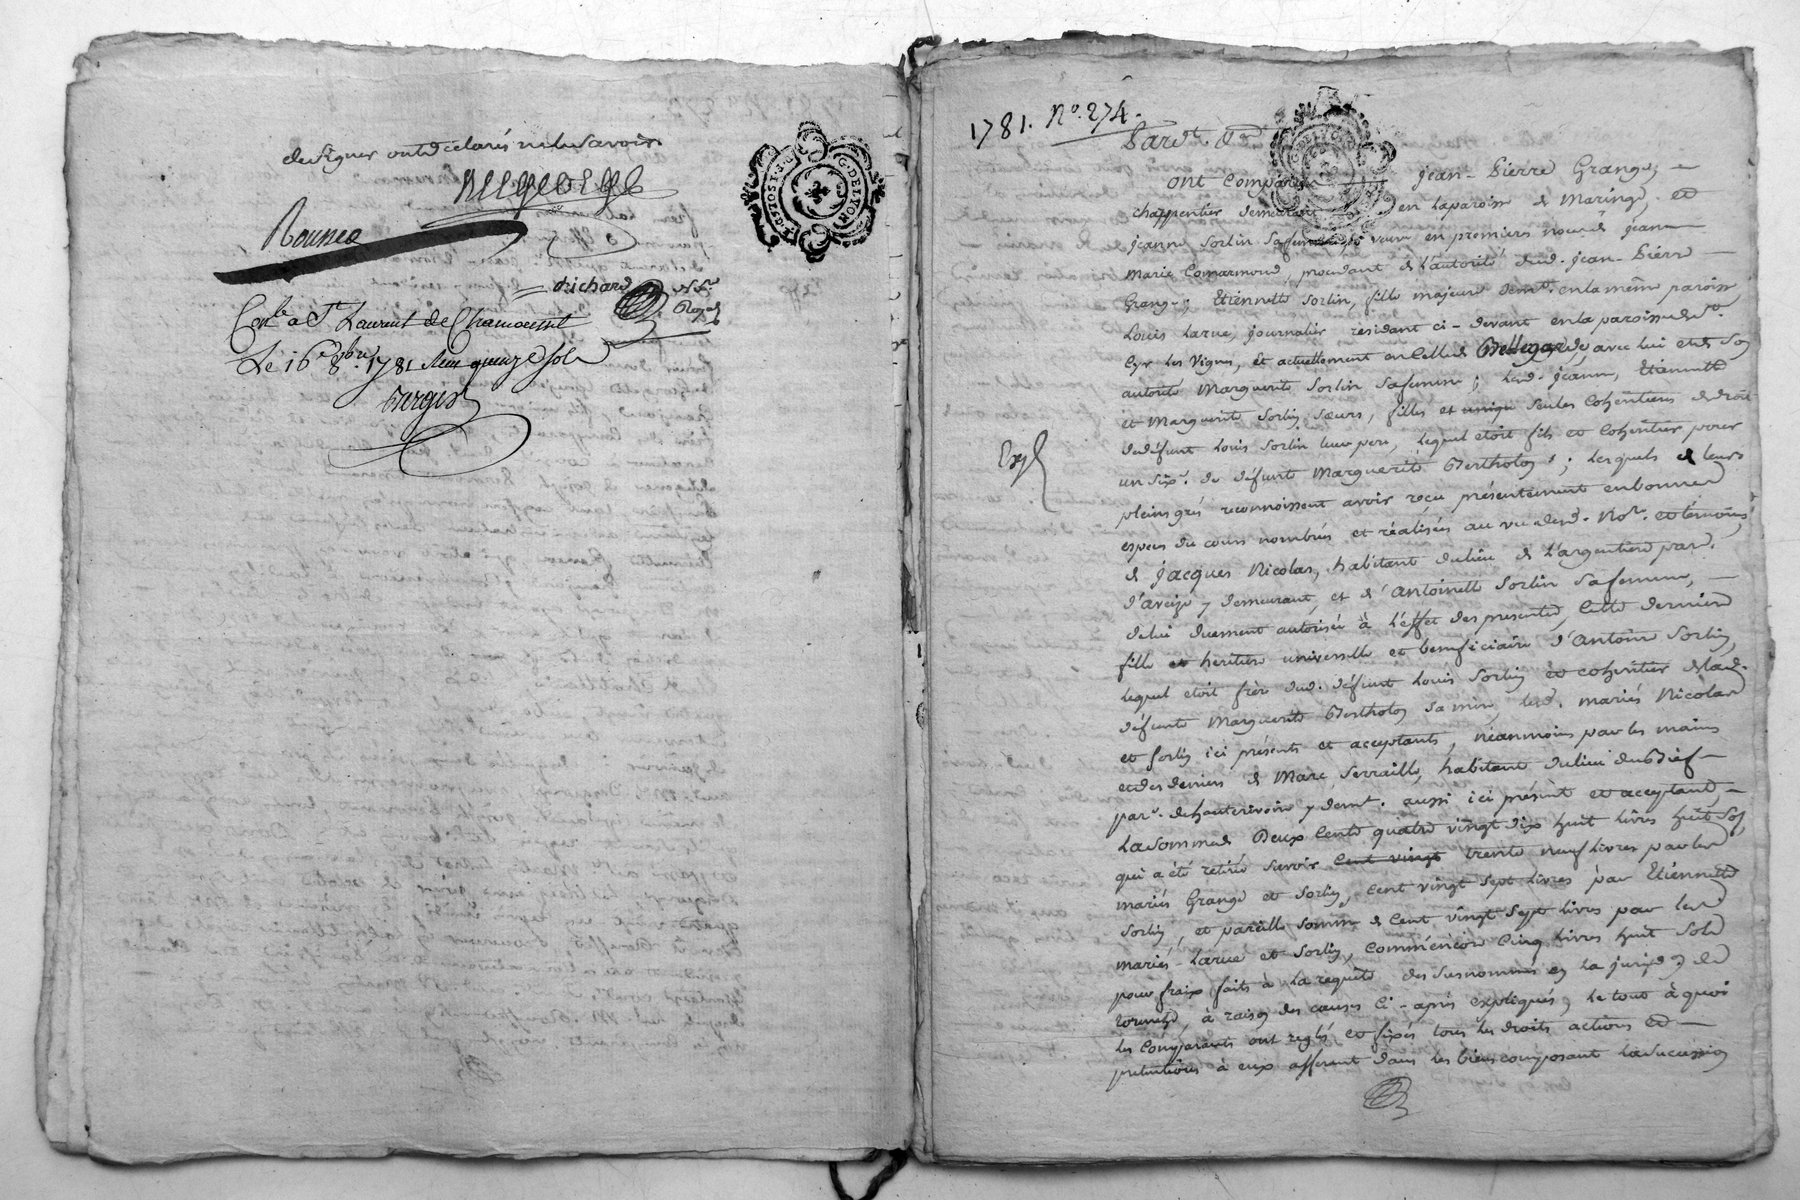 de signer ont déclarés ne le savoir
Rousset
drichard
Conlé a St Laurent de Chamousset
Le 16e 8bre 1781 Reçu quinze sols
G. DE LYON
1781. No. 274.
Pard.t
ont comparu jean-Pierre Grange, —
charpentier demeurant en la paroisse de Maringe, et
jeanne Sorlin sa femme veuve en premiers nœuds de jean
Marie Comarmond, procédant de l'autorité dud. jean-Pierre —
Grange; Etiennette Sorlin, fille majeure demt. en la même paroisse,
Louis Larue, journalier résidant ci-devant en la paroisse de St.
Cyr les Vignes, et actuellement en celle de Bellegarde, avec lui et de son
autorité Marguerite Sorlin sa femme; lesd. jeanne, Etiennette
et Marguerite Sorlin sœurs, filles et unique seules cohéritieres de droit
de défunt Louis Sorlin leur pere, lequel etoit fils et cohéritier pour
un sixe. de défunte Marguerite Bertholon; lesquels de leurs
pleins grés reconnoissent avoir reçu présentement en bonnes
especes du cours nombrés et réalisées au vu desd. Nore. et témoins,
de jacques Nicolas, habitant du lieu de L'argentiere par.
d'aveize y demeurant, et d'Antoinette Sorlin sa femme, —
de lui duement autorisée à l'effet des présentes, cette derniere
fille et héritiere universelle et bénéficiaire d'Antoine Sorlin,
lequel etoit frère dud. défunt Louis Sorlin et cohéritier de lad.
défunte Marguerite Bertholon sa mere, lesd. mariés Nicolas
et Sorlin ici présents et acceptants, néanmoins par les mains
et des deniers de Marc Serraille, habitant du lieu du Bief —
par. de hauterivoire y demt. aussi ici présent et acceptant, —
La somme de Deux Cents quatre vingt dix huit livres huit sols,
qui a été retirée savoir cent vingt trente neuf livres par les
mariés Grange et Sorlin, cent vingt sept livres par Etiennette
Sorlin, et pareille somme de cent vingt sept livres par les
mariés Larue et Sorlin, comm'encore cinq livres huit sols
pour fraix faits à la requête des susnommés en la jurisdon. de
, à raison des causes ci-après expliqués, le tout à quoi
les comparants ont reglés et fixés tous les droits actions et —
prétentions à eux afférent dans les biens composant la succession